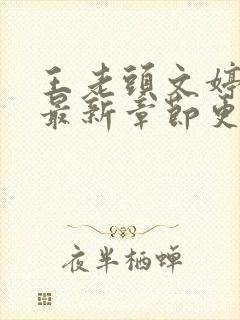 王老頭文婷
最新章節更
夜半栖蝉